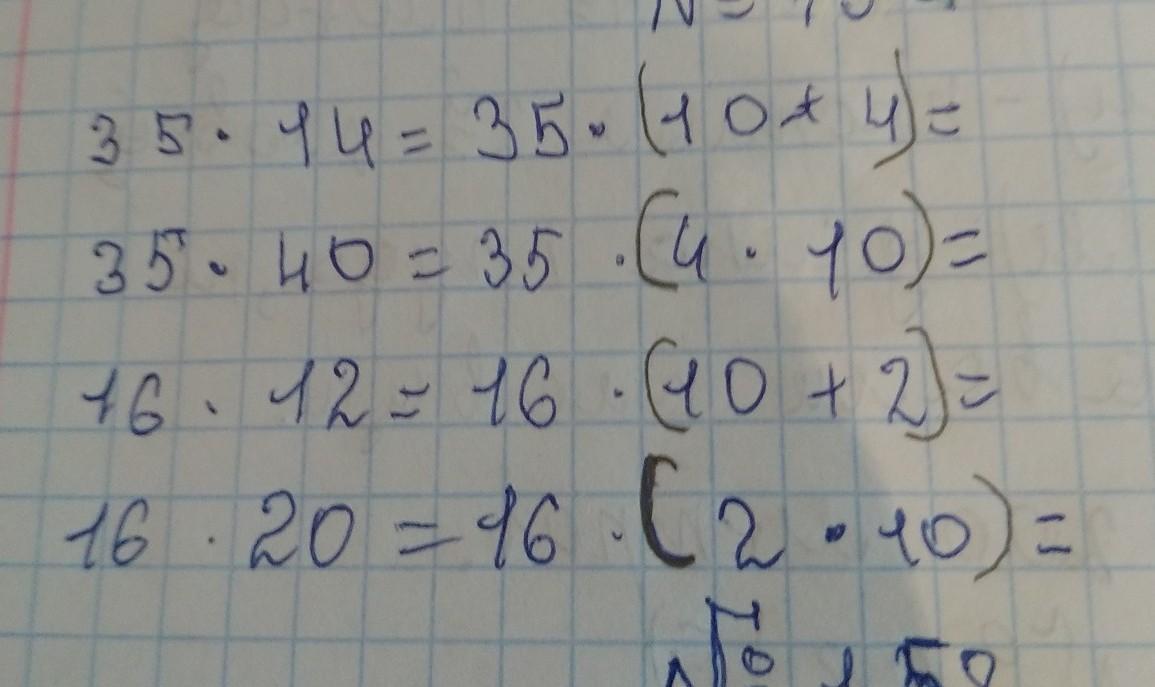 35 · 14 = 35 · (10 + 4) =
35 · 40 = 35 · (4 · 10) =
16 · 12 = 16 · (10 + 2) =
16 · 20 = 16 · (2 · 10) =